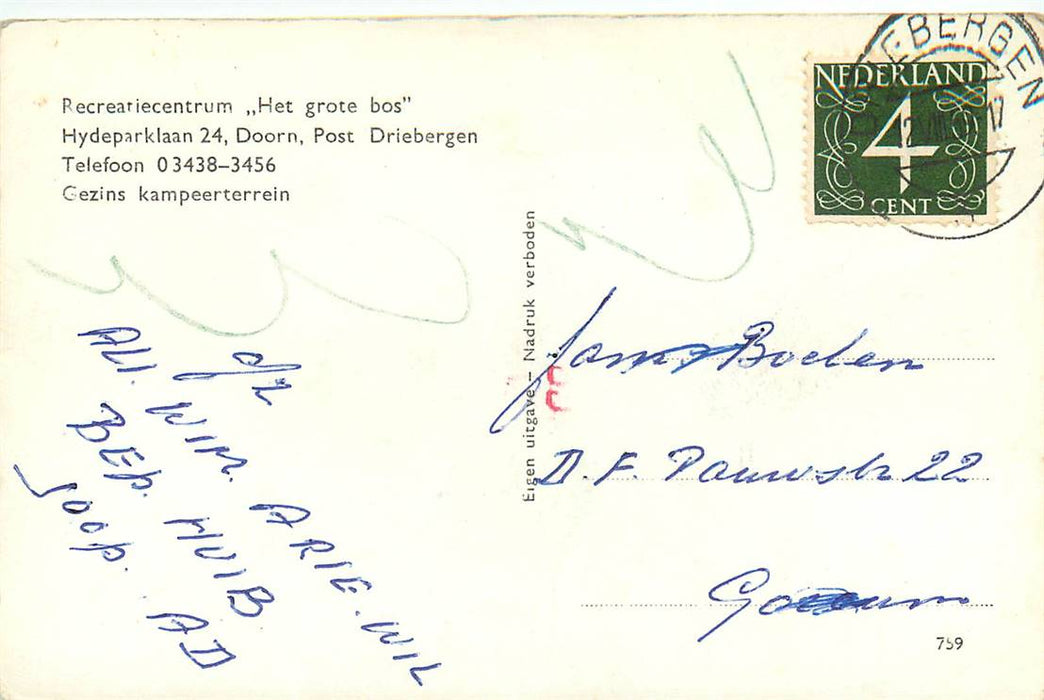 Recreatiecentrum „Het grote bos”
Hydeparklaan 24, Doorn, Post Driebergen
Telefoon 03438–3456
Gezins kampeerterrein
NEDERLAND
4
CENT
DRIEBERGEN
12 VIII 17
Eigen uitgave – Nadruk verboden
Boelen
D. F. Pauwstr 22
759
afz
ALI. WIM. ARIE. WIL
BEP. HUIB AD
Joop.